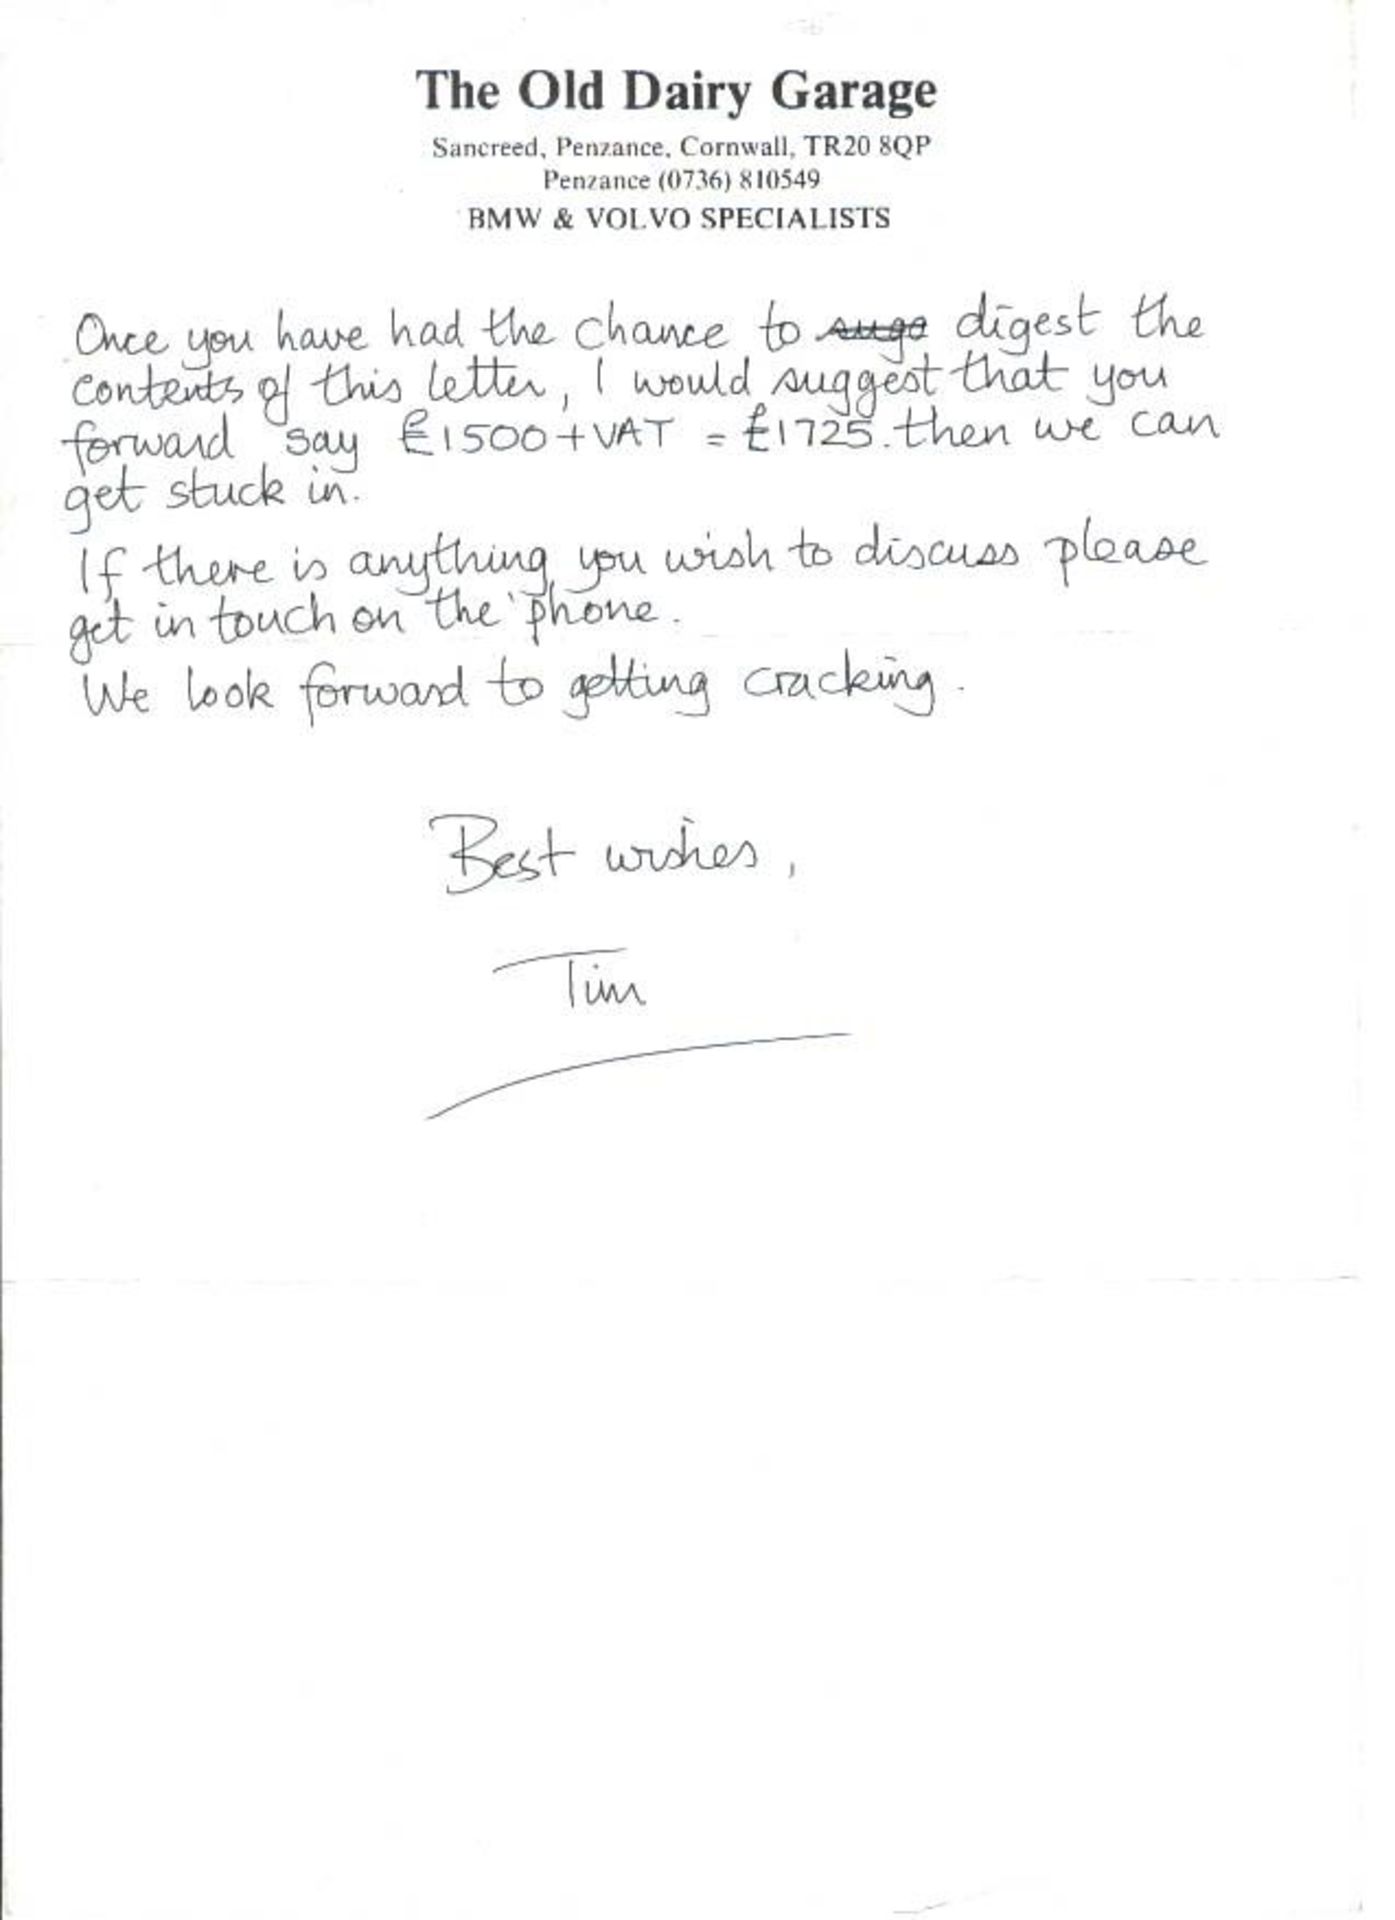 The Old Dairy Garage
Sancreed, Penzance, Cornwall, TR20 8QP
Penzance (0736) 810549
BMW & VOLVO SPECIALISTS
Once you have had the chance to sugg digest the
contents of this letter, I would suggest that you
forward say £1500+VAT = £1725. then we can
get stuck in.
If there is anything you wish to discuss please
get in touch on the 'phone.
We look forward to getting cracking.
Best wishes,
Tim